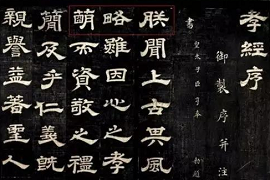 孝經序
御製序并注
書
皇太子臣亨奉 勅題
朕聞上古其風
略雖因心之孝
萌而資敬之禮
簡及乎仁義既
親譽益著聖人